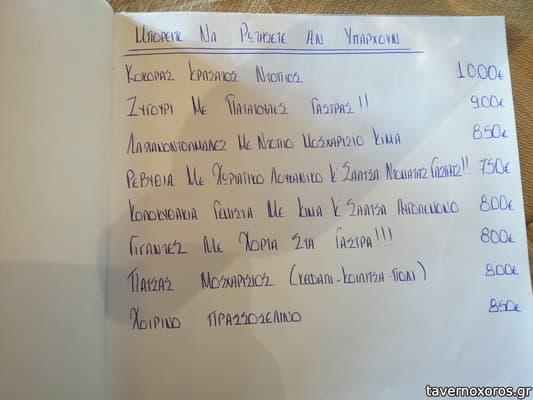 ΜΠΟΡΕΙΤΕ ΝΑ ΡΩΤΗΣΕΤΕ ΑΝ ΥΠΑΡΧΟΥΝ
ΚΟΚΟΡΑΣ ΚΡΑΣΑΤΟΣ ΝΤΟΠΙΟΣ 10,00€
ΖΥΓΟΥΡΙ ΜΕ ΠΑΤΑΤΟΥΛΕΣ ΓΑΣΤΡΑΣ!! 9,00€
ΛΑΧΑΝΟΝΤΟΛΜΑΔΕΣ ΜΕ ΝΤΟΠΙΟ ΜΟΣΧΑΡΙΣΙΟ ΚΙΜΑ 8,50€
ΡΕΒΥΘΙΑ ΜΕ ΧΩΡΙΑΤΙΚΟ ΛΟΥΚΑΝΙΚΟ Κ' ΣΑΛΤΣΑ ΝΤΟΜΑΤΑΣ ΓΑΣΤΡΑΣ!! 7,50€
ΚΟΛΟΚΥΘΑΚΙΑ ΓΕΜΙΣΤΑ ΜΕ ΚΙΜΑ Κ' ΣΑΛΤΣΑ ΑΥΓΟΛΕΜΟΝΟ 8,00€
ΓΙΓΑΝΤΕΣ ΜΕ ΧΟΡΤΑ ΣΤΗ ΓΑΣΤΡΑ!!! 8,00€
ΠΑΤΣΑΣ ΜΟΣΧΑΡΙΣΙΟΣ (ΚΕΦΑΛΙ-ΚΟΙΛΙΤΣΑ-ΠΟΔΙ) 8,00€
ΧΟΙΡΙΝΟ ΠΡΑΣΣΟΣΕΛΙΝΟ 8,50€
tavernoxoros.gr